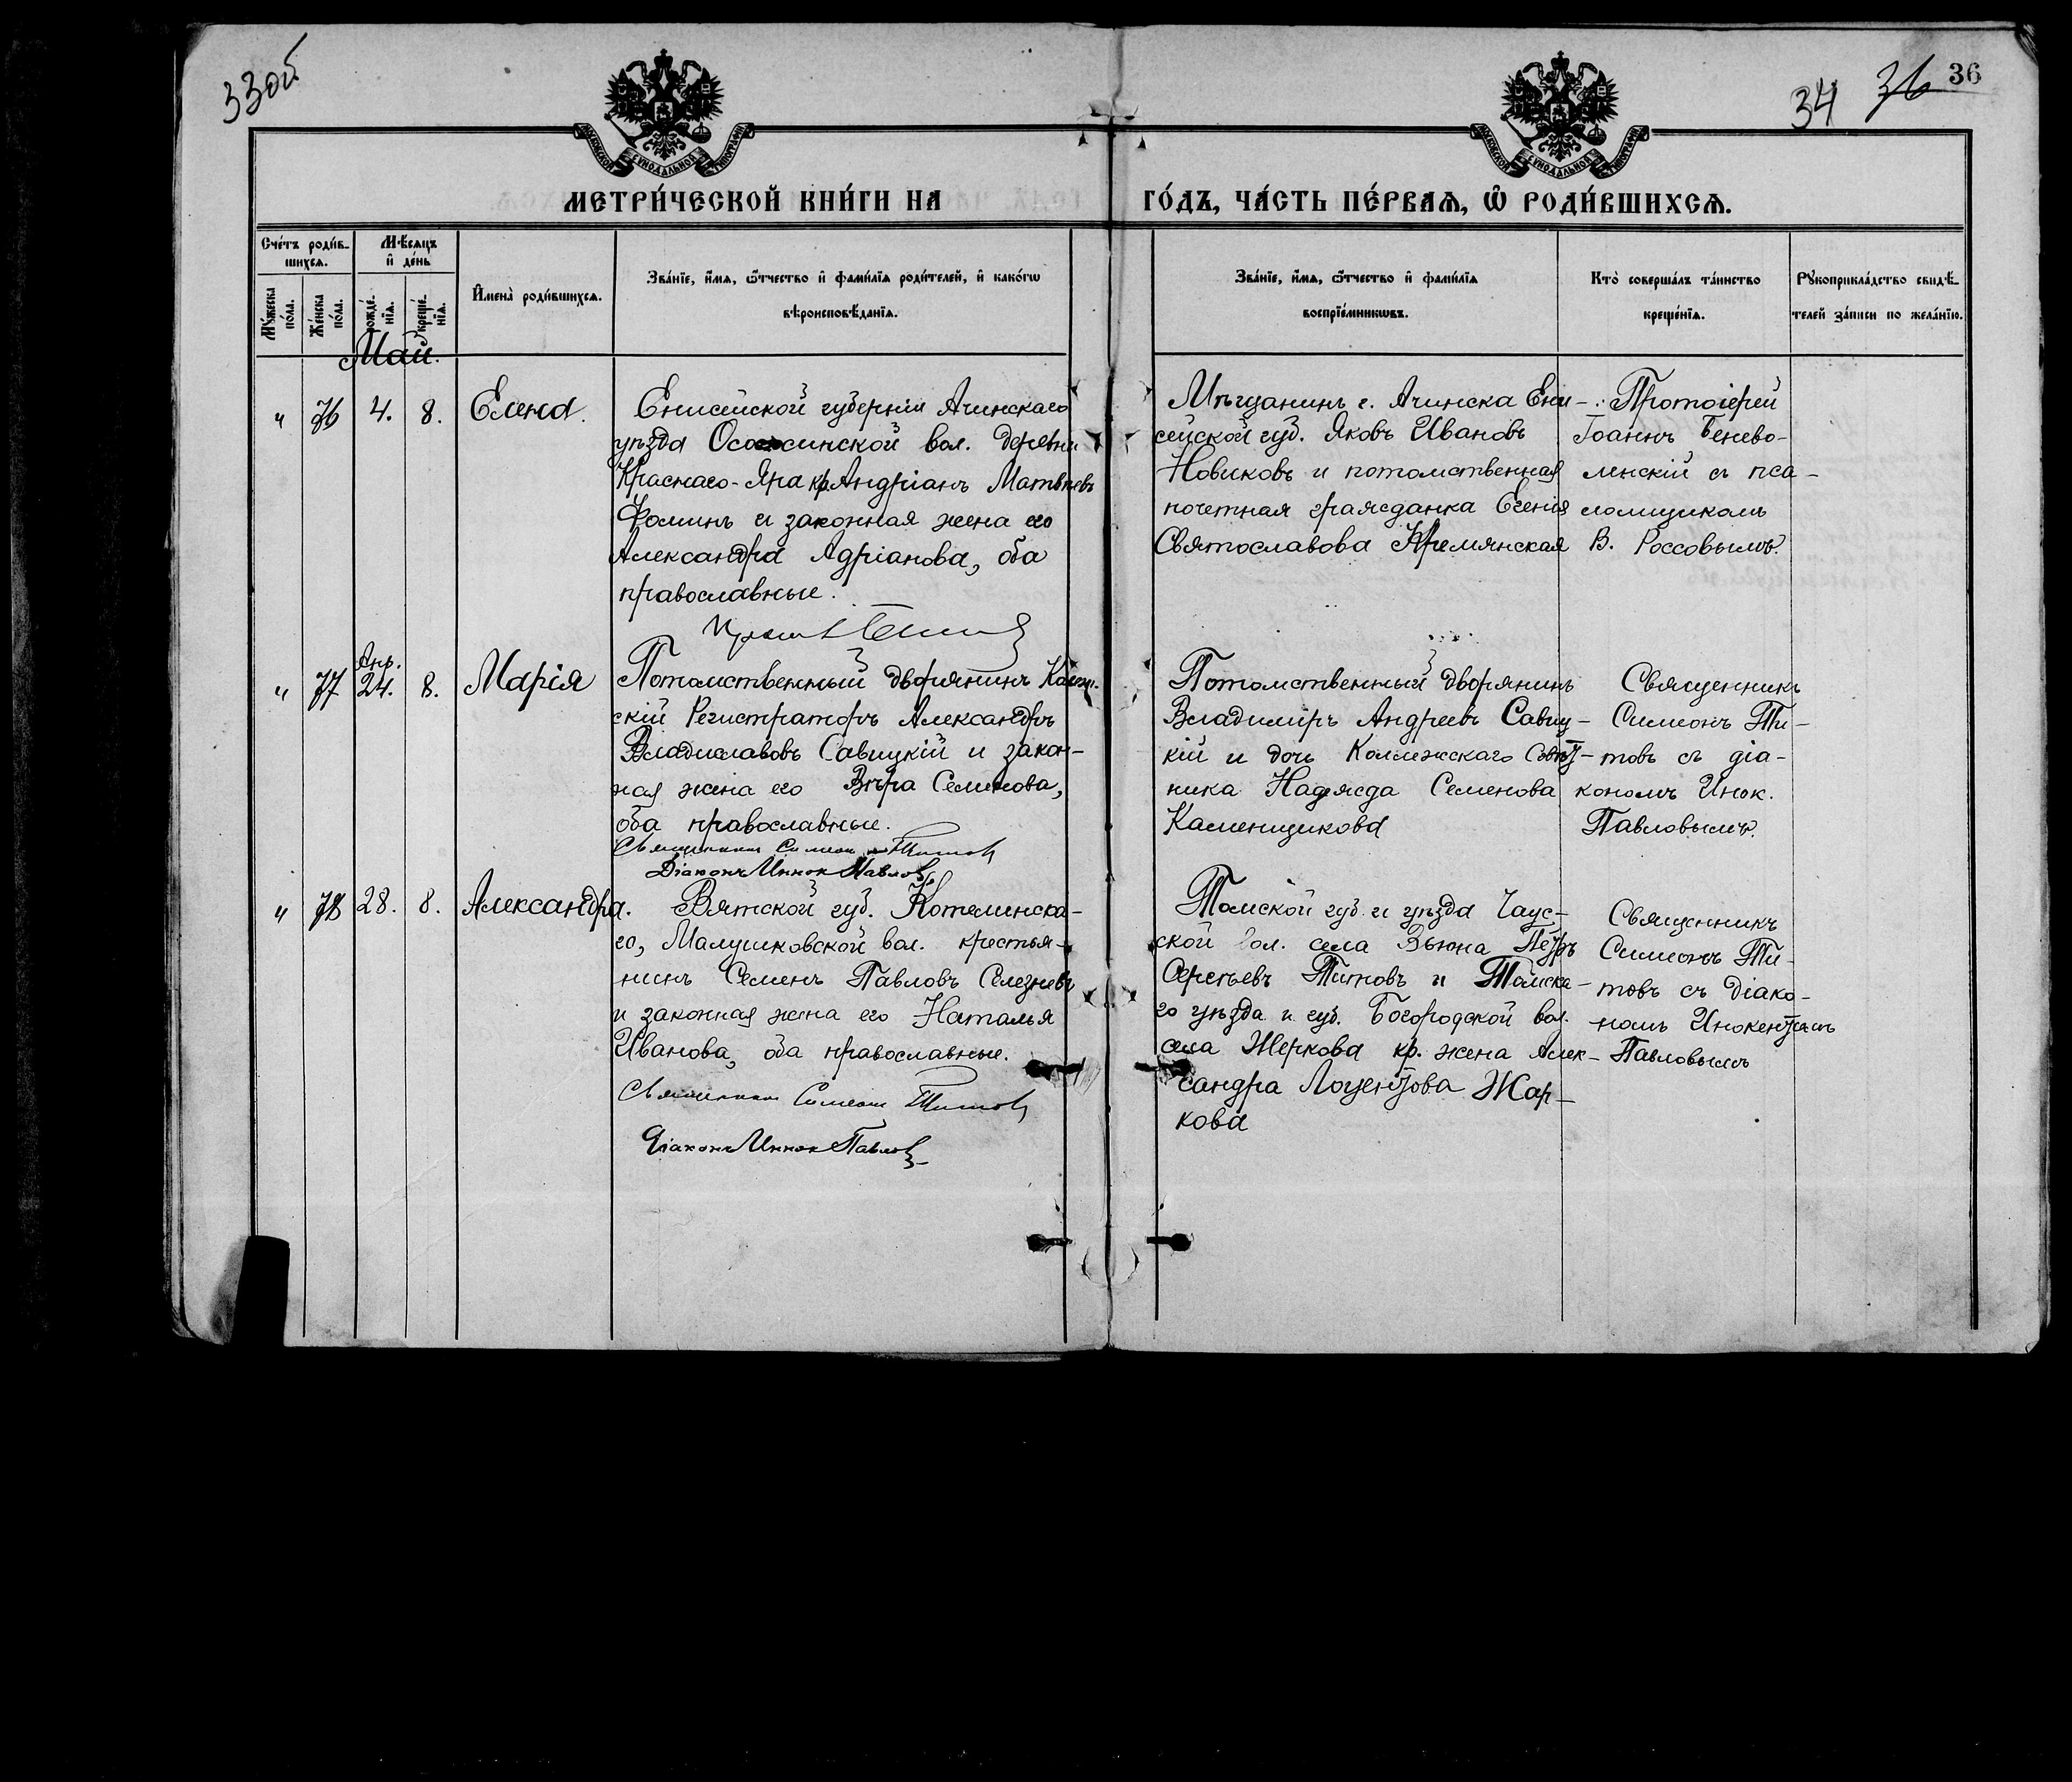 33об
34 36 36
МОСКОВСКОЙ СѴНОДАЛЬНОЙ ТИПОГРАФІИ
МОСКОВСКОЙ СѴНОДАЛЬНОЙ ТИПОГРАФІИ
МЕТРИ́ЧЕСКОЙ КНИ́ГИ НА ГО́ДЪ, ЧА́СТЬ ПЕ́РВАѦ, Ѡ҆ РОДИ́ВШИХСѦ.
Сче́тъ роди́в-
шихсѧ.
Мꙋ́жеска по́ла.
Же́нска по́ла.
Мѣ́сѧцъ
и҆ де́нь
рожде́-
нїѧ.
креще́-
нїѧ.
И҆мена̀ роди́вшихсѧ.
Зва́нїе, и҆́мѧ, ѻ҆́тчество и҆ фами́лїѧ роди́телей, и҆ како́гѡ
вѣроисповѣ́данїѧ.
Зва́нїе, и҆́мѧ, ѻ҆́тчество и҆ фами́лїѧ
воспрїе́мникѡвъ.
Кто̀ соверша́лъ та́инство
креще́нїѧ.
Рꙋкоприкла́дство свидѣ́-
телей за́писи по жела́нїю.
Май.
" 76 4. 8. Елена.
Енисейской губерніи Ачинскаго
уѣзда вол. деревни
Краснаго-Яра кр. Андріанъ Матвѣевъ
Фоминъ и законная жена его
Александра Адріанова, оба
православные.
Мѣщанинъ г. Ачинска Ени-
сейской губ. Яковъ Ивановъ
Новиковъ и потомственная
почетная гражданка Евгенія
Святославова Кремянская
Протоіерей
Іоаннъ Бенево-
ленскій съ пса-
ломщикомъ
В. Россовымъ.
" 77 Апр. 24. 8. Марія
Потомственный дворянинъ Коллеж-
скій Регистраторъ Александръ
Владиславовъ Савицкій и закон-
ная жена его Вѣра Семенова,
оба православные.
Священникъ Симеонъ Титовъ
Діаконъ Иннок Павловъ
Потомственный дворянинъ
Владиміръ Андреевъ Савиц-
кій и дочь Коллежскаго Совѣт-
ника Надежда Семенова
Каменщикова
Священникъ
Симеонъ Ти-
товъ съ діа-
кономъ Инок.
Павловымъ.
" 78 28. 8. Александра.
Вятской губ. Котелинска-
го, Малушковской вол. крестья-
нинъ Семенъ Павловъ Селезневъ
и законная жена его Наталья
Иванова, оба православные.
Священникъ Симеонъ Титовъ
Діаконъ Иннок Павловъ
Томской губ. и уѣзда Чаус-
ской вол. села Вьюна Петръ
Сергѣевъ Титовъ и Томска-
го уѣзда и губ. Богородской вол.
села Жеркова кр. жена Алек-
сандра Жар-
кова
Священникъ
Симеонъ Ти-
товъ съ діако-
номъ Инокентіемъ
Павловымъ